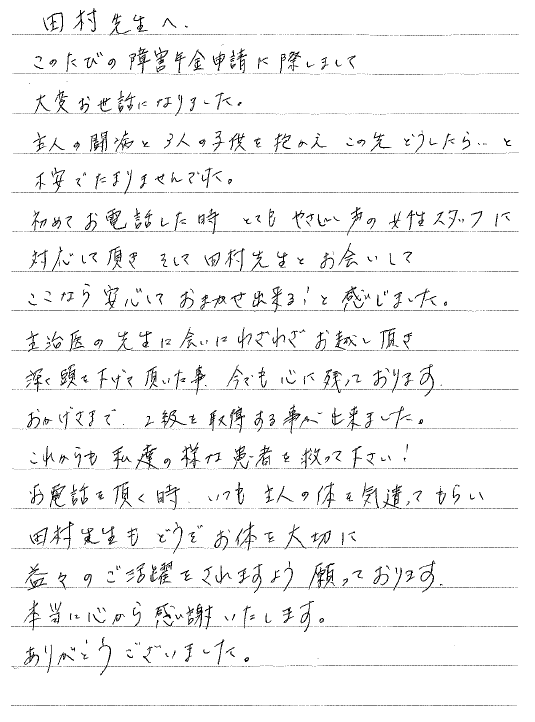 田村先生へ.
このたびの障害年金申請に際しまして
大変お世話になりました。
主人の闘病と3人の子供を抱かえ この先 どうしたら…と
不安でたまりませんでした。
初めてお電話した時 とても やさしい声の女性スタッフに
対応して頂き そして田村先生とお会いして
ここなら安心しておまかせ出来る!と感じました。
主治医の先生に会いにわざわざお越し頂き
深く頭を下げて頂いた事 今でも心に残っております.
おかげさまで、2級を取得する事が出来ました。
これからも私達の様な患者を救って下さい!
お電話を頂く時、いつも主人の体を気遣ってもらい
田村先生もどうぞお体を大切に
益々のご活躍をされますよう願っております.
本当に心から感謝いたします。
ありがとうございました。